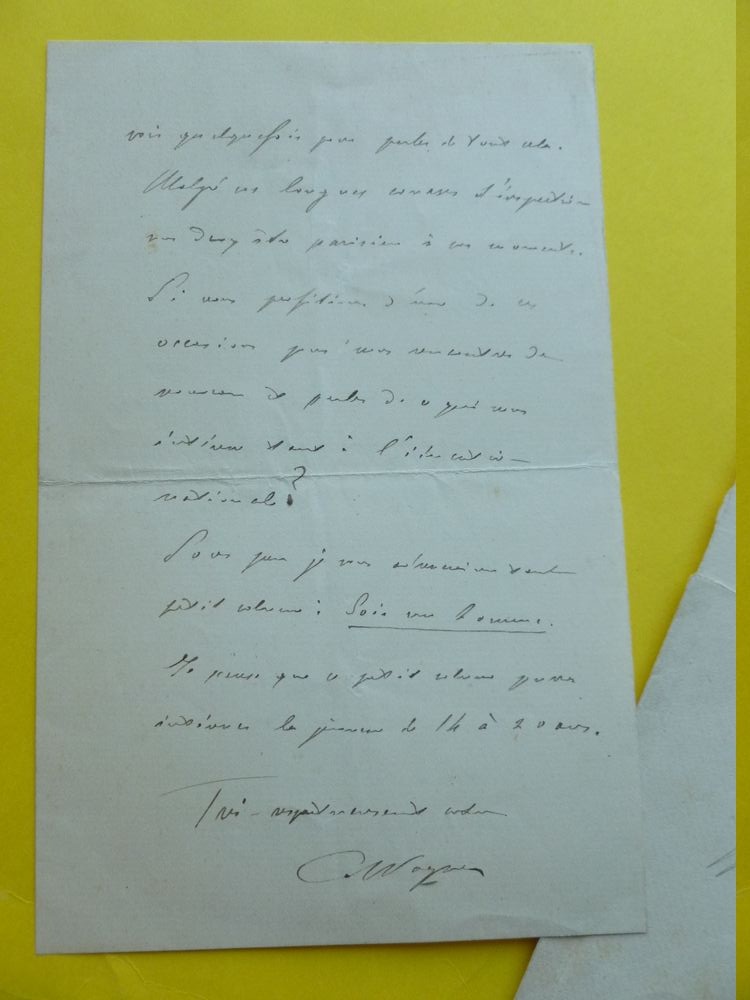 vois quelquefois pour parler de tout cela.
Malgré ces longues courses d'inspection
vous devez être parisien à ces moments.
Si nous profitions d'une de ces
occasions pour nous rencontrer de
nouveau et parler de ce qui nous
intéresse tant à l'éducation
nationale ?
Sous peu je vous enverrai
petit volume : Sois un homme.
Je pense que ce petit volume pourra
intéresser la jeunesse de 14 à 20 ans.
Très-respectueusement votre
C. Wagner